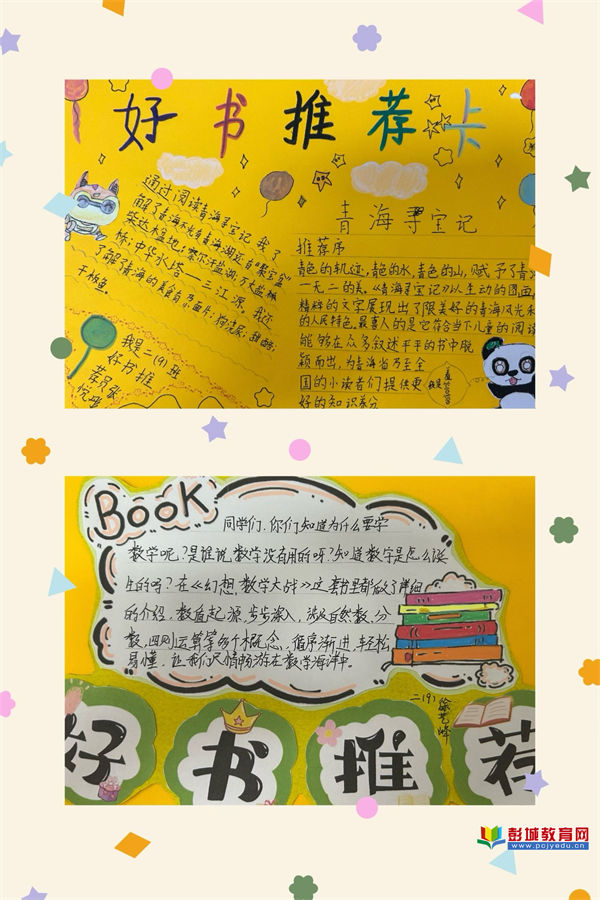 好书推荐卡
通过阅读青海寻宝记我了
解了青海不光有青海湖还有聚宝盆
柴达木盆地:察尔汗盐湖:万丈盐桥
中华水塔——三江源。我还
了解青海的美食有:面片、狗浇尿、甜醅、
干板鱼。
我是二(9)班
好书推
荐员张
青海寻宝记
推荐序
青色的轨迹,青色的水,青色的山,赋予了青
一无二的美。《青海寻宝记》以生动的图画,
精粹的文字展现出了限美好的青海风光和
的人民特色,最喜人的是它符合当下儿童的阅读
能够在众多叙述平平的书中脱
颖而出,为青海省乃至全
国的小读者们提供更
好的知识养分
BOOK
同学们,你们知道为什么要学
数学呢?是谁说数学没有用的呀?知道数字是怎么诞
生的吗?在《幻想数学大战》这套书里都做了详细
的介绍。数面起源,步步深入,涉及自然数、分
数、四则运算等多个概念,循序渐进,轻松
易懂,让我们尽情畅游在数学海洋中。
二(9)
徐艺峰
好书推荐
彭城教育网
www.pcjyedu.cn